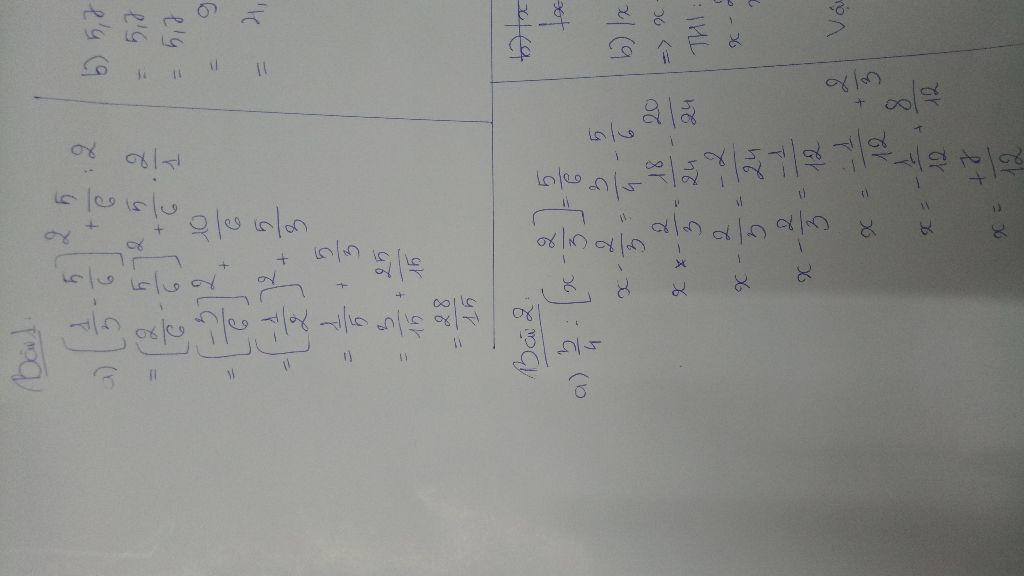 Bài 1:
a) (1/3 - 5/6)² + 5/6 : 2
= (2/6 - 5/6)² + 5/6 · 2/1
= (-3/6)² + 10/6
= (-1/2)² + 5/3
= 1/5 + 5/3
= 3/15 + 25/15
= 28/15
b) 5,7
= 5,7
= 5,7
= 9
= 4,
Bài 2:
a) 3/4 : (x - 2/3) = 5/6
x - 2/3 = 3/4 - 5/6
x - 2/3 = 18/24 - 20/24
x - 2/3 = -2/24
x - 2/3 = -1/12
x = -1/12 + 2/3
x = -1/12 + 8/12
x = +7/12
b) |x
b) |x
=> x -
TH1:
x -
Vậ